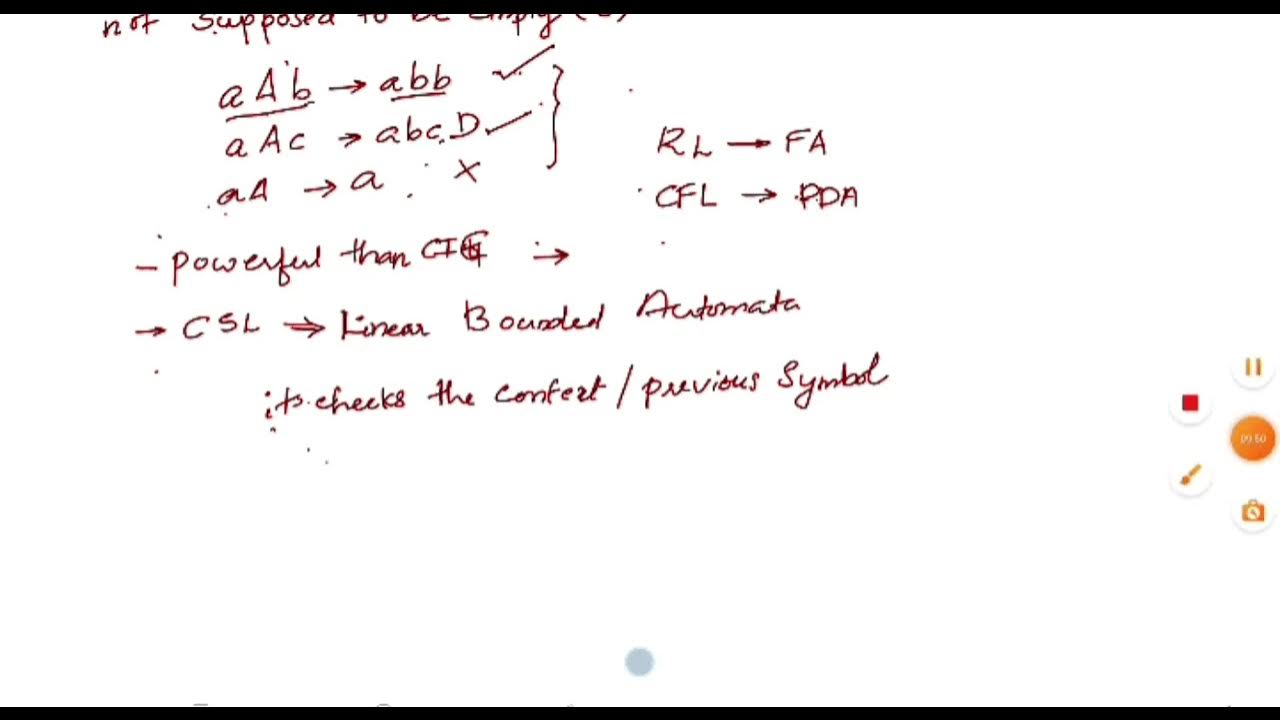 not supposed to be empty (
aAb → abb ✓
aAc → abcD ✓
aA → a ×
RL → FA
CFL → PDA
– powerful than CFG →
→ CSL ⇒ Linear Bounded Automata
its checks the context / previous symbol
09:50